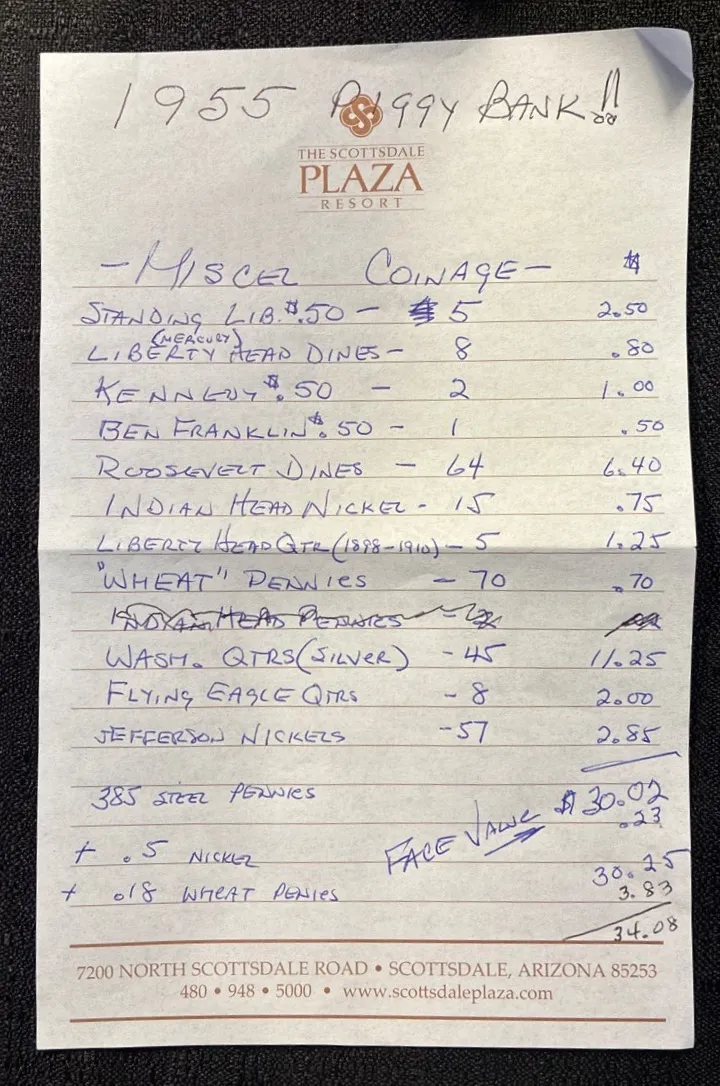 1955 PIGGY BANK !!
THE SCOTTSDALE
PLAZA
RESORT
- MISCEL COINAGE - $
STANDING LIB. $.50 - 5 2.50
(MERCURY)
LIBERTY HEAD DINES - 8 .80
KENNEDY $.50 - 2 1.00
BEN FRANKLIN $.50 - 1 .50
ROOSEVELT DINES - 64 6.40
INDIAN HEAD NICKEL - 15 .75
LIBERTY HEAD QTR (1898-1910) - 5 1.25
"WHEAT" PENNIES - 70 .70
INDIAN HEAD PENNIES
WASH. QTRS (SILVER) - 45 11.25
FLYING EAGLE QTRS - 8 2.00
JEFFERSON NICKELS - 57 2.85
385 STEEL PENNIES
FACE VALUE $30.02
.23
+ .5 NICKEL
30.25
+ .18 WHEAT PENIES 3.83
34.08
7200 NORTH SCOTTSDALE ROAD • SCOTTSDALE, ARIZONA 85253
480 • 948 • 5000 • www.scottsdaleplaza.com